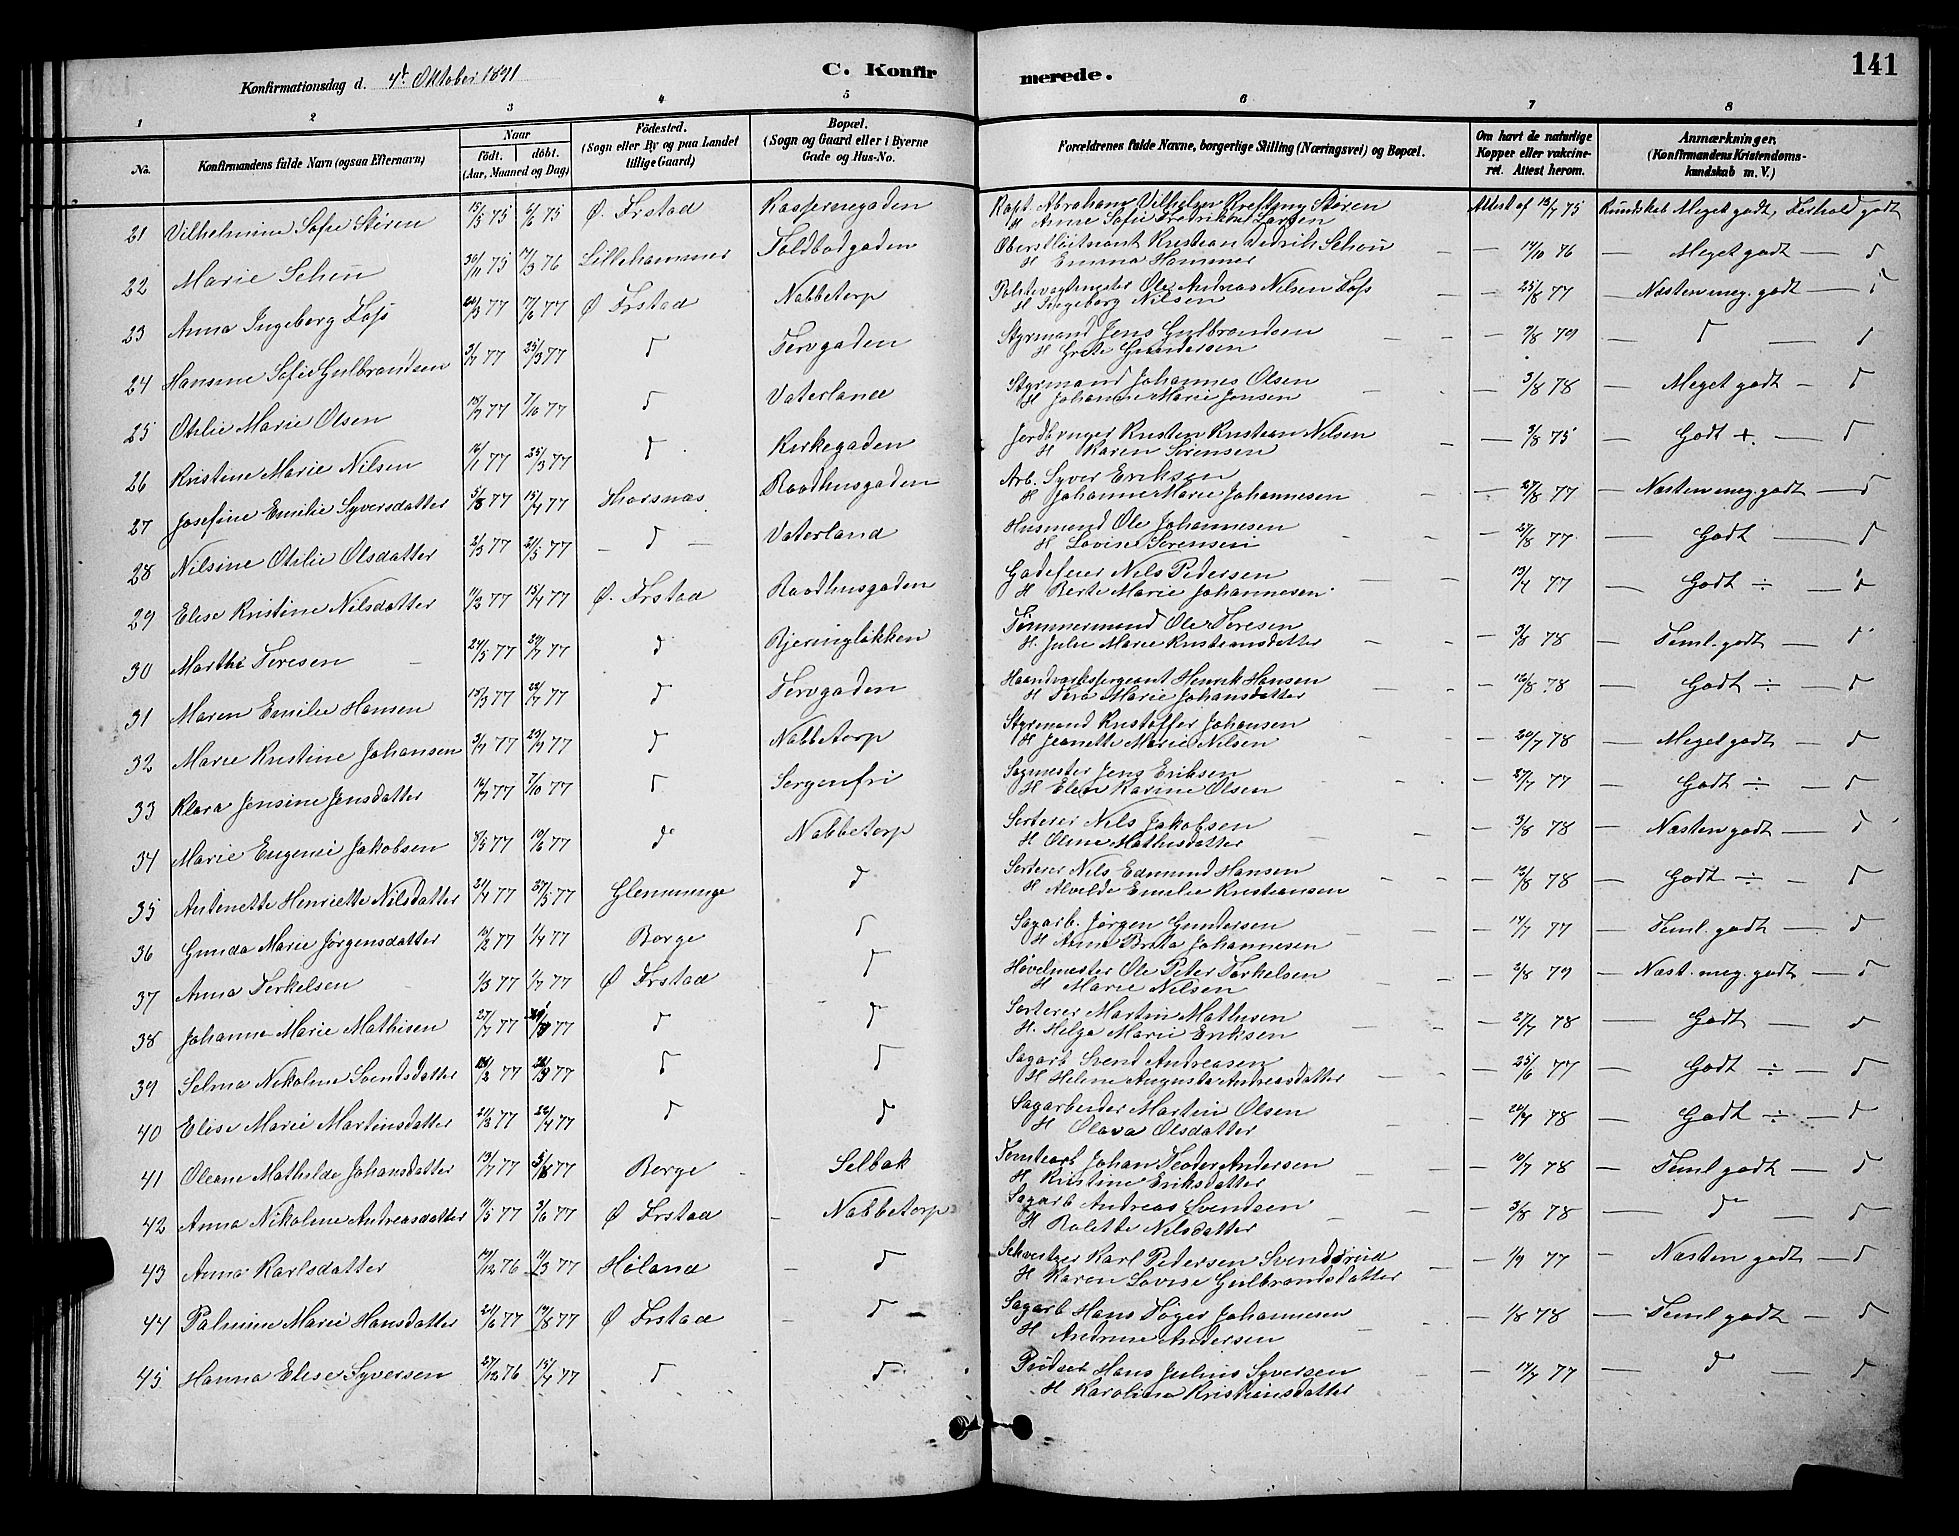 141
Konfirmationsdag d. 4de Oktober 1891
C. Konfirmerede.
1 2 3 4 5 6 7 8
No.
Konfirmandens fulde Navn (ogsaa Efternavn)
Naar
född. döbt.
(Aar, Maaned og Dag)
Födested.
(Sogn eller By og paa Landet
tillige Gaard)
Bopæl.
(Sogn og Gaard eller i Byerne
Gade og Hus-No.
Forældrenes fulde Navne, borgerlige Stilling (Næringsvei) og Bopæl.
Om havt de naturlige
Kopper eller vakcine-
ret. Attest herom.
Anmærkninger.
(Konfirmandens Kristendoms-
kundskab m. V.)
21 Vilhelmine Sofie Stören 15/5 75 6/6 75 Ø. Frstad Kasernegaden Kapt. Abraham Vilhelm Krefting Stören
H Anne Sofie Fredrikke Larsen Attest af 13/7 75 Kundskab Meget godt, Forhold godt
22 Marie Schou 30/11 75 17/3 76 Lillehammer Toldbodgaden Oberstlöitnant Kristian Didrik Schou
H Emma Hammer — 14/10 76 — Meget godt — d
23 Anna Ingeborg Foss 7/6 77 Ø Frstad Nabbetorp Politivagtmester Ole Andreas Nilsen Foss
H Ingeborg Nilsen — 25/8 77 — Næsten meg. godt — d
24 Hansine Sofie Gulbrandsen 3/1 77 25/3 77 d Torvgaden Styrmand Jens Gulbrandsen
H Grete Gundersen — 2/8 79 — d — d
25 Otilie Marie Olsen 7/10 77 d Vaterland Styrmand Johannes Olsen
H Johanne Marie Jensen — 3/8 78 — Meget godt — d
26 Kristine Marie Nilsen 16/1 77 25/3 77 d Kirkegaden Jordbruger Kristen Kristian Nilsen
H Karen Sörensen — 3/8 75 — Godt +. — d
27 Josefine Emilie Syversdatter 5/3 77 15/4 77 Thorsnæs Raadhusgaden Arb. Syver Eriksen
H Johanne Marie Johannesen — 27/8 77 — Næsten meg. godt — d
28 Nilsine Otilie Olsdatter 2/3 77 21/5 77 — d — Vaterland Husmand Ole Johannesen
H Lovise Sörensen — 27/8 77 — Godt — d
29 Elise Kristine Nilsdatter 11/2 77 15/4 77 Ø. Frstad Raadhusgaden Gadefeier Nils Pedersen
H Berte Marie Johannesen — 77 — Godt ÷ — d
30 Marthe Toresen 24/5 77 77 d Bjeringlökken Tömmermand Ole Toresen
H. Julie Marie Kristiansdatter — 3/8 78 — Teml. godt — d
31 Maren Emilie Hansen 15/3 77 22/7 77 d Torvgaden Haandværkssergeant Henrik Hansen
H Tera Marie Johansdatter — 78 — Godt ÷ — d
32 Marie Kristine Johansen 3/7 77 77 d Nabbetorp Styrmand Kristoffer Johansen
H Jeanette Marie Nilsen — 20/7 78 — Meget godt — d
33 Klara Jensine Jensdatter 16/7 77 7/10 77 d Sorgenfri Sagmester Jens Eriksen
H Elen Karine Olsen — 27/7 77 — Godt ÷ — d
34 Marie Eugenie Jakobsen 8/5 77 10/6 77 d Nabbetorp Sorterer Nils Jakobsen
H Oline Mathisdatter — 3/8 78 — Næsten godt — d
35 Antonette Henriette Nilsdatter 21/4 77 27/5 77 Glemminge d Sorterer Nils Edmund Hansen
H Alvilde Emilie Kristiansen — 78 — Godt ÷ — d
36 Gunda Marie Jörgensdatter 77 1/4 77 Borge d Sagarb. Jörgen Gundersen
H Anne Brita Johannesen — 14/7 77 — Teml. godt — d
37 Anna Terkelsen 1/3 77 1/7 77 Ø Frstad d Hövelmester Ole Peter Torkelsen
H Marie Nilsen — 2/8 79 — Næst. meg. godt — d
38 Johanne Marie Mathisen 27/7 77 77 d d Sorterer Martin Mathisen
H. Helga Marie Eriksen — 27/7 78 — Godt — d
39 Selma Nikoline Svendsdatter 77 77 d d Sagarb Svend Andreasen
H Helene Augusta Andreasdatter — 25/6 77 — Godt ÷ — d
40 Elise Marie Martinsdatter 21/3 77 22/4 77 d d Sagarbeider Martin Olsen
H Olava Olsdatter — 78 — Godt ÷ — d
41 Oleane Mathilde Johansdatter 77 5/8 77 Borge Selbak Tomtearb Johan Teodor Andersen
H Kristine Eriksdatter — 10/7 78 — Teml godt — d
42 Anna Nikoline Andreasdatter 11/5 77 3/6 77 Ø Frstad Nabbetorp Sagarb Andreas Svendsen
H Bolette Nilsdatter — 3/8 78 — d — d
43 Anna Karlsdatter 76 11/3 77 Höland d Karl Pedersen Svendsrud
H Karen Lovise Gulbrandsdatter — 1/9 77 — Næsten godt — d
44 Palmine Marie Hansdatter 24/6 77 77 Ø Frstad d Sagarb Hans Töger Johannesen
H Andrine Andersen — 1/8 78 — Teml godt — d
45 Hanna Elise Syversen 27/12 76 15/4 77 d d Hans Julius Syversen
H Karoline Kristiansdatter — 77 — d — d